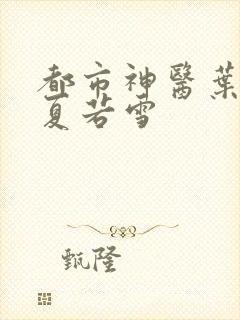 都市神醫葉
夏若雪
甄隆